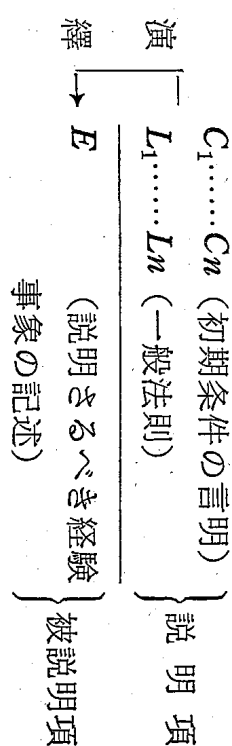 演繹
C₁……Cn (初期条件の言明)
L₁……Ln (一般法則)
説明項
E (説明さるべき経験
事象の記述)
被説明項